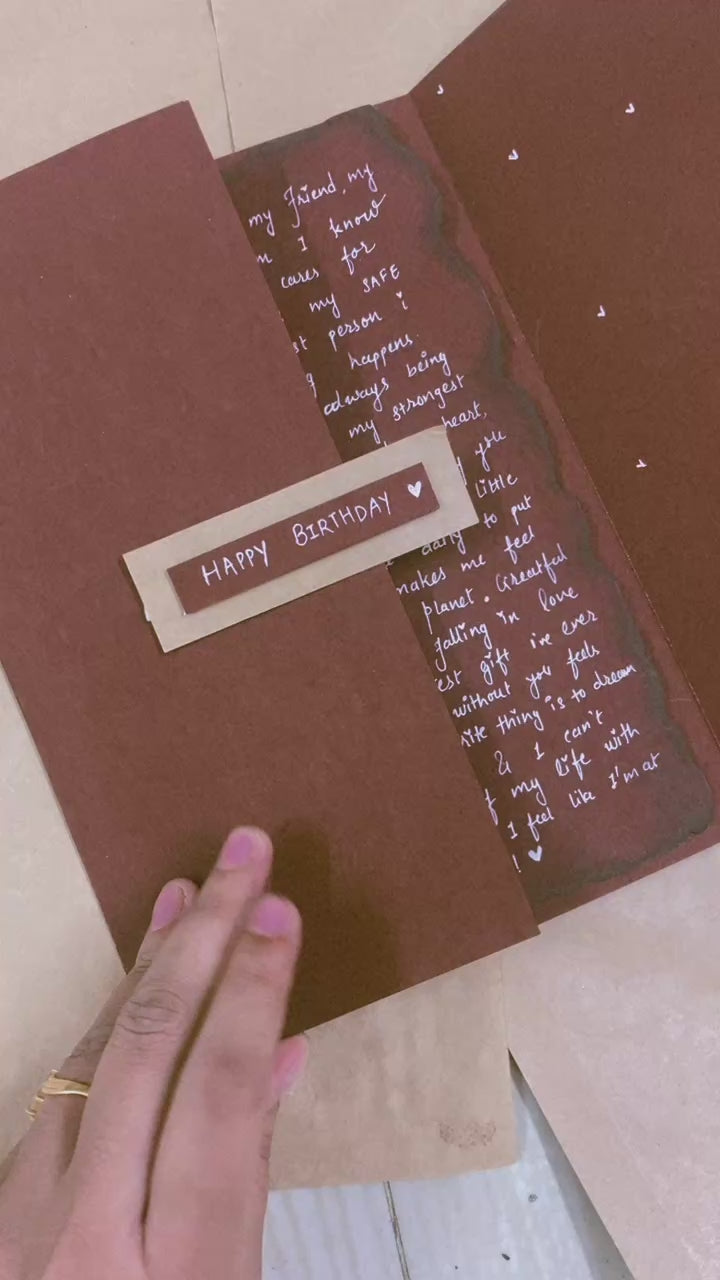 my friend, my
I know
cares for
my SAFE
person i
happens.
always being
my strongest
heart,
you
little
HAPPY BIRTHDAY
daily to put
makes me feel
planet. Greatful
falling in love
gift i've ever
without you feels
thing is to dream
& I can't
my life with
I feel like I'm at
!